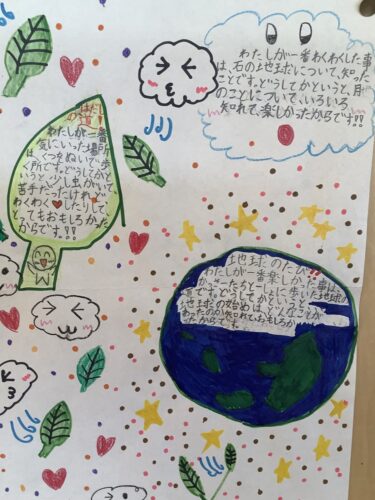 わたしが一番わくわくした事
は、石の地球について、知った
ことです。どうしてかというと、月
のことについて、いろいろ
知れて、楽しかったからです!!
はだし
の道!!
わたしが一番
気にいった場所
は、くつをぬいでいく
所です。どうしてかと
いうと、 虫がいて、
苦手だったけれど
わくわく♥したりして、
とてもおもしろかった
からです!!!
地球のたび!!
わたしが一番楽しかった事は、
歩いた地球の
です。どうしてかというと、
地球の始めはどんなことが
あったのか知れておもしろか
ったからです。